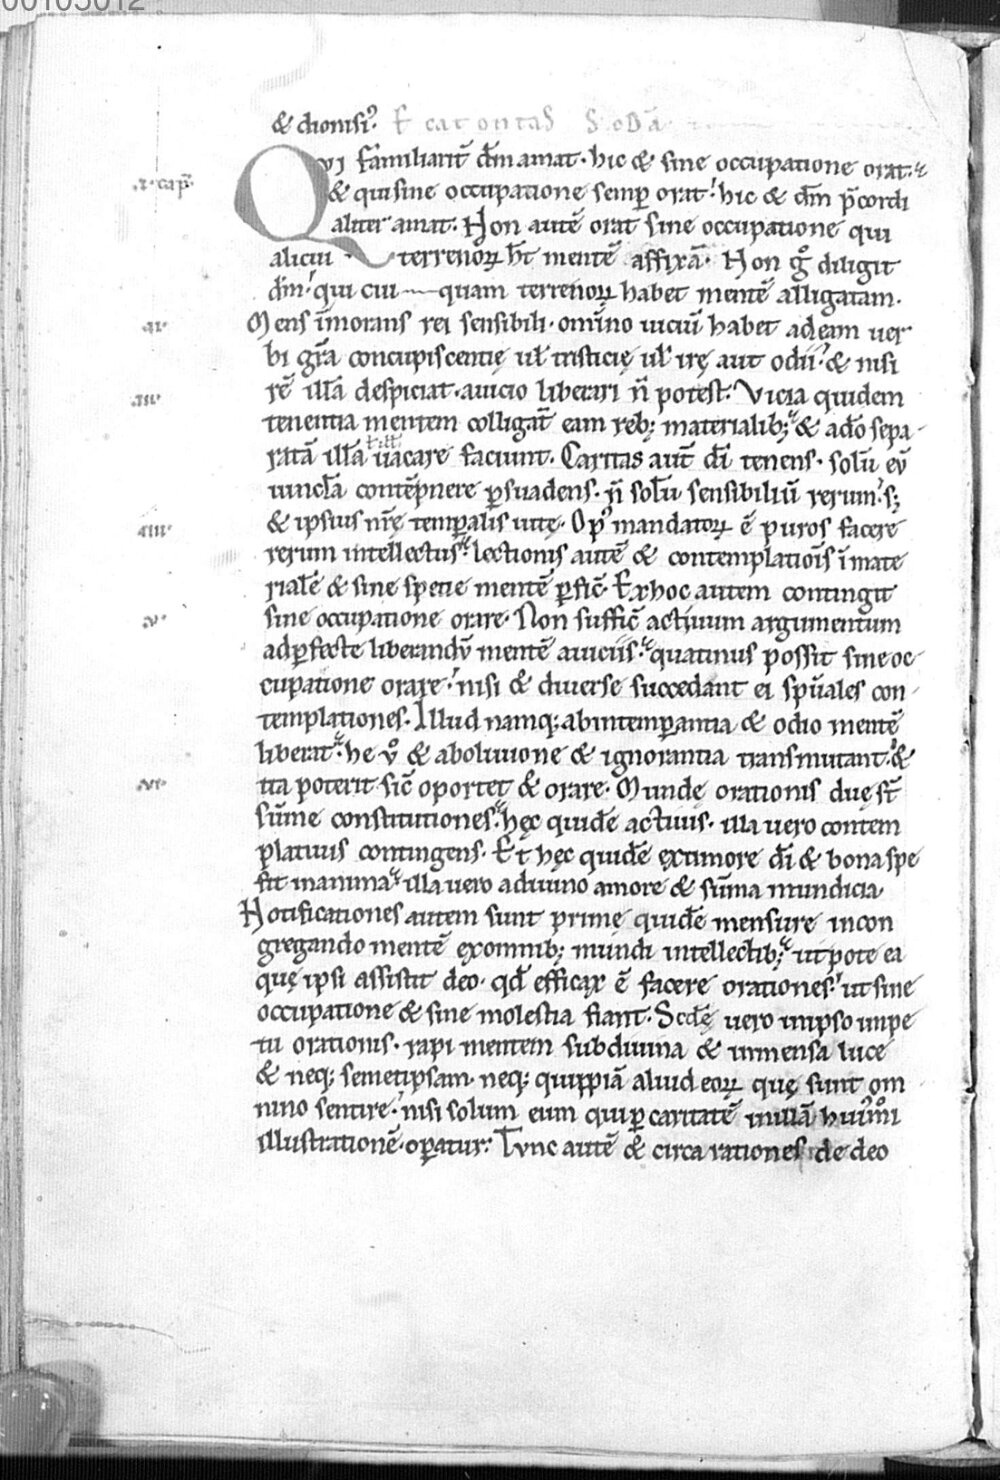 & dionisiꝰ. Ecatontas Scꝺa
QVI familiarit̄ dm̄ amat. hic & sine occupatione orat.
.ı. cap̄.
& qui sine occupatione semp̄ orat. hic & dm̄ p̄cordi
aliter amat. Non autē orat sine occupatione qui
alicui terrenoꝝ h̄t mentē affixā. Non g̊ diligit
dm̄. qui cui quam terrenoꝝ habet mentē alligatam.
.ıı.
Mens īmorans rei sensibili. omīno uiciū habet ad eam uer
bi gr̄a concupiscentię ul̄ tristicię ul̄ irę aut odii. & nisi
rē illā despiciat. a uicio liberari n̄ potest. Vicia quidem
.ııı.
tenentia mentem colligat̄ eam reb; materialib; & a dō sepa
ratā illā uacare faciunt. Caritas aut̄ dī tenens. solū eū
uinctā contēpnere ꝑsuadens. n̄ solū sensibiliū rerum. s;
& ipsius nr̄ę temꝑalis uitę. Opꝰ mandatoꝝ ē puros facere
.ıııı.
rerum intellectus. lectionis autē & contemplatiōis īmate
rialē & sine specie mentē ꝑfic̄. Ex hoc autem contingit
sine occupatione orare. Non suffic̄ actiuum argumentum
.v.
ad ꝑfecte liberandū mentē a uiciis. quatinus possit sine oc
cupatione orare. nisi & diuerse succedant ei sp̄uales con
templationes. Illud namq; ab intemꝑantia & odio mentē
liberat. he v̊ & a obliuione & ignorantia transmutant. &
ita poterit sic̄ oportet & orare. Munde orationis duę st̄
.vı.
sūme constitutiones. hęc quidē actiuis. illa uero contem
platiuis contingens. Et hęc quidē ex timore dī & bona spe
fit in anima. illa uero a diuino amore & sūma mundicia
Notificationes autem sunt primę quidē mensurę in con
gregando mentē ex omnib; mundi intellectib; ut pote ea
quę ipsi assistit deo. qd̄ efficax ē facere orationes. ut sine
occupatione & sine molestia fiant. Scdę uero in ipso impe
tu orationis. rapi mentem sub diuina & immensa luce
& neq; semetipsam. neq; quippiā aliud eoꝝ quę sunt om
nino sentire. nisi solum eum qui ꝑ caritatē in illā huiꝰmōi
illustrationē. oꝑatur. Tunc autē & circa rationes de deo